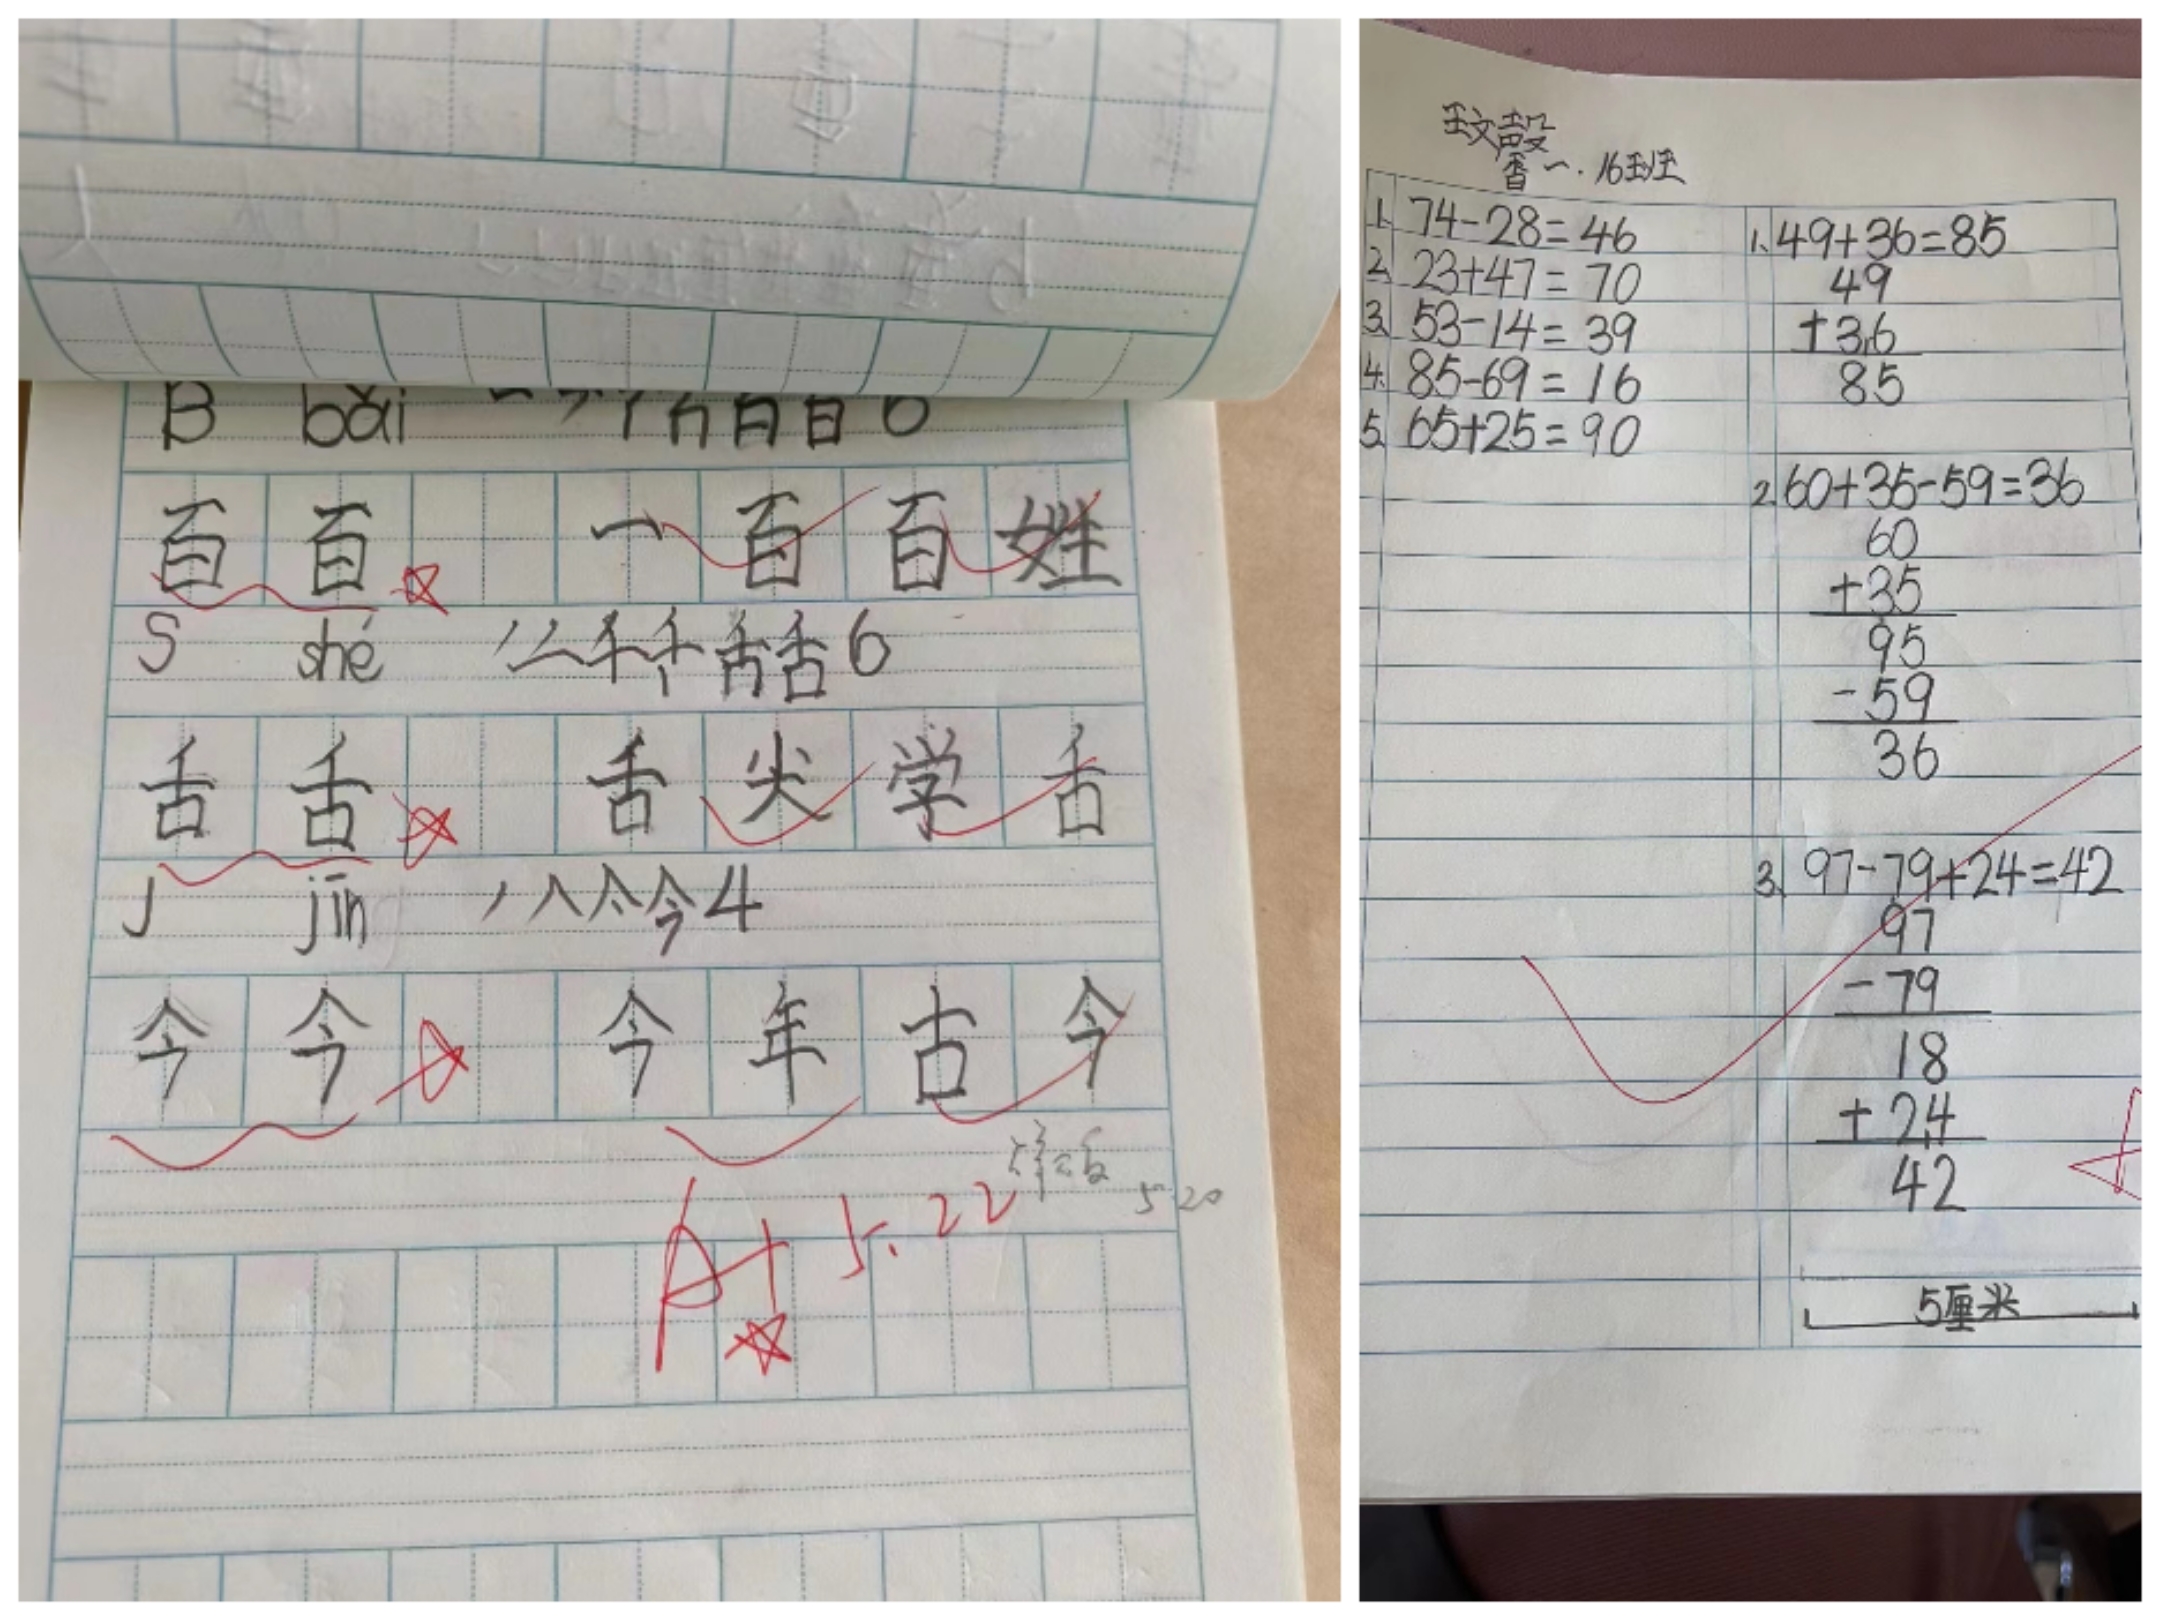 B bǎi 6
百 百 一 百 百 姓
S shé 舌 6
舌 舌 舌 尖 学 舌
J jīn 丿 人 亽 今 4
今 今 今 年 古 今
A+ 5.22
5.20
一.16班
1. 74-28=46
2. 23+47=70
3. 53-14=39
4. 85-69=16
5. 65+25=90
1. 49+36=85
49
+36
85
2. 60+35-59=36
60
+35
95
-59
36
3. 97-79+24=42
97
-79
18
+24
42
5厘米